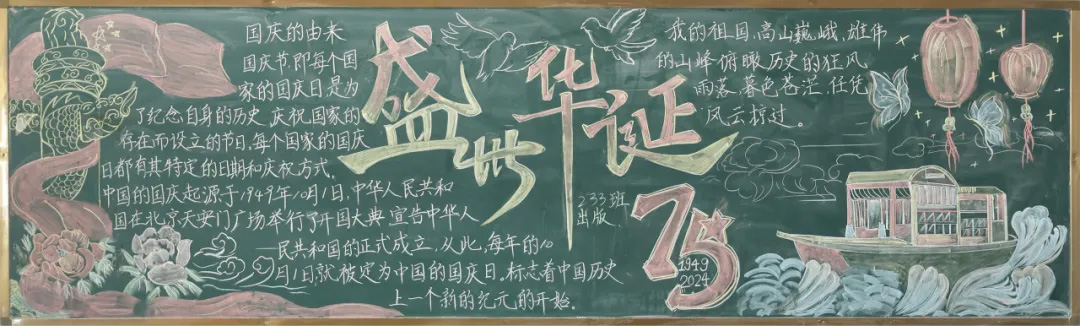 国庆的由来
国庆节,即每个国
家的国庆日是为
了纪念自身的历史 庆祝国家的
存在而设立的节日,每个国家的国庆
日都有其特定的日期和庆祝方式,
中国的国庆起源于1949年10月1日,中华人民共和
国在北京天安门广场举行了开国大典 宣告中华人
民共和国的正式成立,从此,每年的10
月1日就被定为中国的国庆日,标志着中国历史
上一个新的纪元的开始。
盛世华诞
233班
出版
75
1949
2024
我的祖国,高山巍峨,雄伟
的山峰俯瞰历史的狂风
雨落,暮色苍茫,任凭
风云掠过。